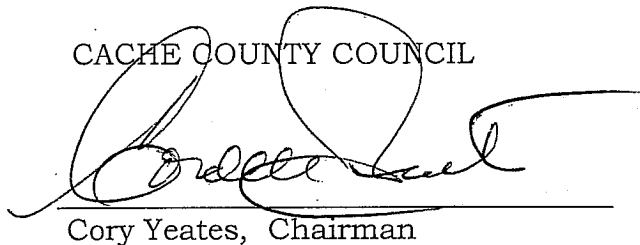 CACHE COUNTY COUNCIL
Cory Yeates, Chairman